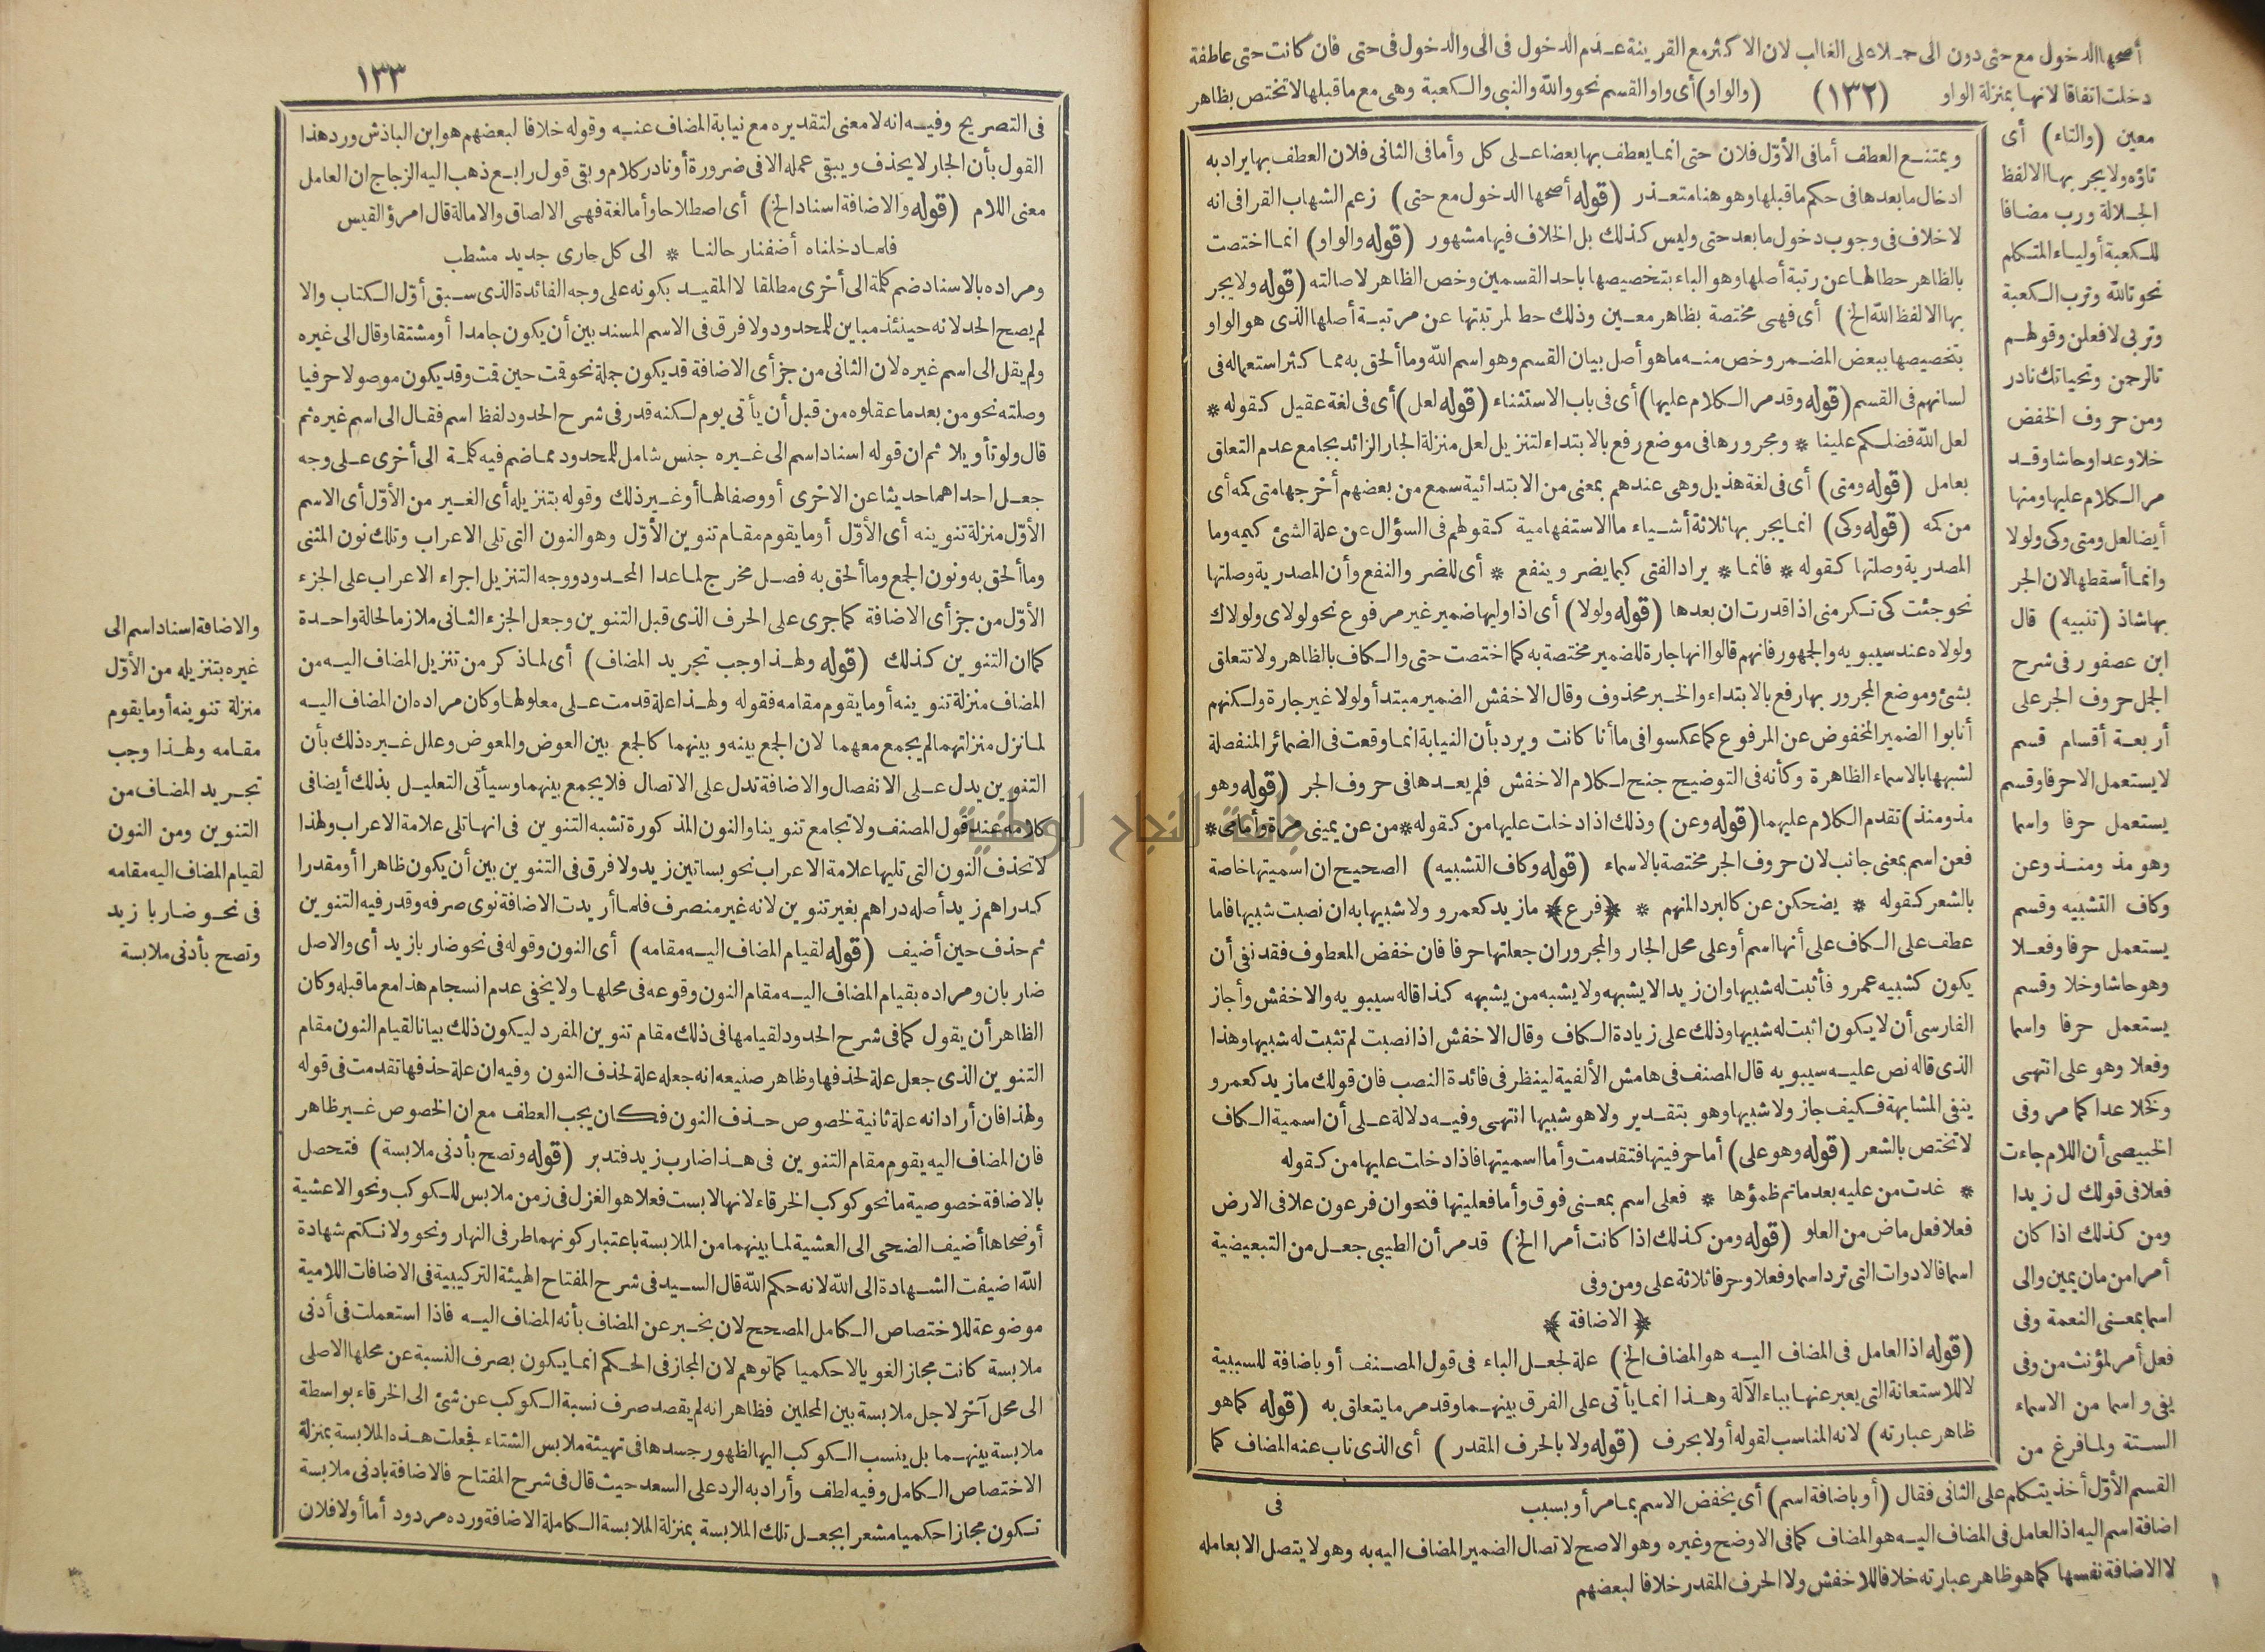 أصحها الدخول مع حتى دون الى حملا على الغالب لان الاكثر مع القرينة عدم الدخول فى الى والدخول فى حتى فان كانت حتى عاطفة
دخلت اتفاقا لانها بمنزلة الواو (١٣٢) (والواو) أى واو القسم نحو والله والنبى والكعبة وهى مع ما قبلها لا تختص بظاهر
معين (والتاء) أى
تاؤه ولا يجر بها الا لفظ
الجلالة ورب مضافا
للكعبة أو لياء المتكلم
نحو تالله وترب الكعبة
وتربى لافعلن وقولهم
تالرحمن وتحياتك نادر
ومن حروف الخفض
خلا وعدا وحاشا وقد
مر الكلام عليها ومنها
أيضا لعل ومتى وكى ولولا
وانما أسقطها لان الجر
بها شاذ (تنبيه) قال
ابن عصفور فى شرح
الجمل حروف الجر على
أربعة أقسام قسم
لا يستعمل الا حرفا وقسم
يستعمل حرفا واسما
وهو مذ ومنذ وعن
وكاف التشبيه وقسم
يستعمل حرفا وفعلا
وهو حاشا وخلا وقسم
يستعمل حرفا واسما
وفعلا وهو على انتهى
وكخلا عدا كما مر وفى
الخبيصى أن اللام جاءت
فعلا فى قولك ل زيدا
ومن كذلك اذا كان
أمرا من مان يمين والى
اسما بمعنى النعمة وفى
فعل أمر لمؤنث من وفى
يفى واسما من الاسماء
الستة ولما فرغ من
القسم الأوّل أخذ يتكلم على الثانى فقال (أو باضافة اسم) أى يخفض الاسم بما مر أو بسبب
اضافة اسم اليه اذ العامل فى المضاف اليه هو المضاف كما فى الاوضح وغيره وهو الاصح لاتصال الضمير المضاف اليه به وهو لا يتصل الا بعامله
لا الاضافة نفسها كما هو ظاهر عبارته خلافا للاخفش ولا الحرف المقدر خلافا لبعضهم
ويمتنع العطف أما فى الأوّل فلان حتى انما يعطف بها بعضا على كل وأما فى الثانى فلان العطف بها يراد به
ادخال ما بعدها فى حكم ما قبلها وهو هنا متعذر (قوله أصحها الدخول مع حتى) زعم الشهاب القرافى انه
لا خلاف فى وجوب دخول ما بعد حتى وليس كذلك بل الخلاف فيها مشهور (قوله والواو) انما اختصت
بالظاهر حطا لها عن رتبة أصلها وهو الباء بتخصيصها باحد القسمين وخص الظاهر لاصالته (قوله ولا يجر
بها الا لفظ الله الخ) أى فهى مختصة بظاهر معين وذلك حط لمرتبتها عن مرتبة أصلها الذى هو الواو
بتخصيصها ببعض المضمر وخص منه ما هو أصل بيان القسم وهو اسم الله وما ألحق به مما كثر استعماله فى
لسانهم فى القسم (قوله وقد مر الكلام عليها) أى فى باب الاستثناء (قوله لعل) أى فى لغة عقيل كقوله *
لعل الله فضلكم علينا * ومجرورها فى موضع رفع بالابتداء لتنزيل لعل منزلة الجار الزائد بجامع عدم التعلق
بعامل (قوله ومتى) أى فى لغة هذيل وهى عندهم بمعنى من الابتدائية سمع من بعضهم أخرجها متى كمه أى
من كمه (قوله وكى) انما يجر بها ثلاثة أشياء ما الاستفهامية كقولهم فى السؤال عن علة الشئ كيمه وما
المصدرية وصلتها كقوله * فانما * يراد الفتى كيما يضر وينفع * أى للضر والنفع وأن المصدرية وصلتها
نحو جئت كى تكرمنى اذا قدرت ان بعدها (قوله ولولا) أى اذا وليها ضمير غير مرفوع نحو لولاى ولولاك
ولولاه عند سيبويه والجمهور فانهم قالوا انها جارة للضمير مختصة به كما اختصت حتى والكاف بالظاهر ولا تتعلق
بشئ وموضع المجرور بها رفع بالابتداء والخبر محذوف وقال الاخفش الضمير مبتدأ ولولا غير جارة ولكنهم
أنابوا الضمير المخفوض عن المرفوع كما عكسوا فى ما أنا كانت ويرد بأن النيابة انما وقعت فى الضمائر المنفصلة
لشبهها بالاسماء الظاهرة وكأنه فى التوضيح جنح لكلام الاخفش فلم يعدها فى حروف الجر (قوله وهو
مذ ومنذ) تقدم الكلام عليهما (قوله وعن) وذلك اذا دخلت عليها من كقوله * من عن يمينى مرة وأمامى *
فعن اسم بمعنى جانب لان حروف الجر مختصة بالاسماء (قوله وكاف التشبيه) الصحيح ان اسميتها خاصة
بالشعر كقوله * يضحكن عن كالبرد المنهم * ﴿فرع﴾ ما زيد كعمرو ولا شبيها به ان نصبت شبيها فاما
عطف على الكاف على أنها اسم أو على محل الجار والمجرور ان جعلتها حرفا فان خفض المعطوف فقد نفى أن
يكون كشبيه عمرو فأثبت له شبيها وان زيدا لا يشبهه ولا يشبه من يشبهه كذا قاله سيبويه والاخفش وأجاز
الفارسى أن لا يكون اثبت له شبيها وذلك على زيادة الكاف وقال الاخفش اذا نصبت لم تثبت له شبيها وهذا
الذى قاله نص عليه سيبويه قال المصنف فى هامش الألفية لينظر فى فائدة النصب فان قولك ما زيد كعمرو
ينفى المشابهة فكيف جاز ولا شبيها وهو بتقدير ولا هو شبيها انتهى وفيه دلالة على أن اسمية الكاف
لا تختص بالشعر (قوله وهو على) أما حرفيتها فتقدمت وأما اسميتها فاذا دخلت عليها من كقوله
* غدت من عليه بعد ما تم ظمؤها * فعلى اسم بمعنى فوق وأما فعليتها فنحو ان فرعون علا فى الارض
فعلا فعل ماض من العلو (قوله ومن كذلك اذا كانت أمرا الخ) قد مر أن الطيبى جعل من التبعيضية
اسما فالادوات التى ترد اسما وفعلا وحرفا ثلاثة على ومن وفى
﴿الاضافة﴾
(قوله اذ العامل فى المضاف اليه هو المضاف الخ) علة لجعل الباء فى قول المصنف أو باضافة للسببية
لا للاستعانة التى يعبر عنها بباء الآلة وهذا انما يأتى على الفرق بينهما وقد مر ما يتعلق به (قوله كما هو
ظاهر عبارته) لانه المناسب لقوله أولا بحرف (قوله ولا بالحرف المقدر) أى الذى ناب عنه المضاف كما
فى
١٣٣
فى التصريح وفيه انه لا معنى لتقديره مع نيابة المضاف عنه وقوله خلافا لبعضهم هو ابن الباذش ورد هذا
القول بأن الجار لا يحذف ويبقى عمله الا فى ضرورة أو نادر كلام وبقى قول رابع ذهب اليه الزجاج ان العامل
معنى اللام (قوله والاضافة اسناد الخ) أى اصطلاحا وأما لغة فهى الالصاق والامالة قال امرؤ القيس
فلما دخلناه أضفنا رحالنا * الى كل جارى جديد مشطب
ومراده بالاسناد ضم كلمة الى أخرى مطلقا لا المقيد بكونه على وجه الفائدة الذى سبق أوّل الكتاب والا
لم يصح الحد لانه حينئذ مباين للمحدود ولا فرق فى الاسم المسند بين أن يكون جامدا أو مشتقا وقال الى غيره
ولم يقل الى اسم غيره لان الثانى من جزأى الاضافة قد يكون جملة نحو قمت حين قمت وقد يكون موصولا حرفيا
وصلته نحو من بعد ما عقلوه من قبل أن يأتى يوم لكنه قدر فى شرح الحدود لفظ اسم فقال الى اسم غيره ثم
قال ولو تأويلا ثم ان قوله اسناد اسم الى غيره جنس شامل للمحدود مما ضم فيه كلمة الى أخرى على وجه
جعل احداهما حديثا عن الاخرى أو وصفا لها أو غير ذلك وقوله بتنزيله أى الغير من الأوّل أى الاسم
الأوّل منزلة تنوينه أى الأوّل أو ما يقوم مقام تنوين الأوّل وهو النون التى تلى الاعراب وتلك نون المثنى
وما ألحق به ونون الجمع وما ألحق به فصل مخرج لما عدا المحدود ووجه التنزيل اجراء الاعراب على الجزء
الأوّل من جزأى الاضافة كما جرى على الحرف الذى قبل التنوين وجعل الجزء الثانى ملازما لحالة واحدة
كما ان التنوين كذلك (قوله ولهذا وجب تجريد المضاف) أى لما ذكر من تنزيل المضاف اليه من
المضاف منزلة تنوينه أو ما يقوم مقامه فقوله ولهذا علة قدمت على معلولها وكان مراده ان المضاف اليه
لما نزل منزلتهما لم يجمع معهما لان الجمع بينه وبينهما كالجمع بين العوض والمعوض وعلل غيره ذلك بأن
التنوين يدل على الانفصال والاضافة تدل على الاتصال فلا يجمع بينهما وسيأتى التعليل بذلك أيضا فى
كلامه عند قول المصنف ولا تجامع تنوينا والنون المذكورة تشبه التنوين فى انها تلى علامة الاعراب ولهذا
لا تحذف النون التى تليها علامة الاعراب نحو بساتين زيد ولا فرق فى التنوين بين أن يكون ظاهرا أو مقدرا
كدراهم زيد أصله دراهم بغير تنوين لانه غير منصرف فلما أريدت الاضافة نوى صرفه وقدر فيه التنوين
ثم حذف حين أضيف (قوله لقيام المضاف اليه مقامه) أى النون وقوله فى نحو ضاربا زيد أى والاصل
ضاربان ومراده بقيام المضاف اليه مقام النون وقوعه فى محلها ولا يخفى عدم انسجام هذا مع ما قبله وكان
الظاهر أن يقول كما فى شرح الحدود لقيامها فى ذلك مقام تنوين المفرد ليكون ذلك بيانا لقيام النون مقام
التنوين الذى جعل علة لحذفها وظاهر صنيعه انه جعله علة لحذف النون وفيه ان علة حذفها تقدمت فى قوله
ولهذا فان أراد انه علة ثانية لخصوص حذف النون فكان يجب العطف مع ان الخصوص غير ظاهر
فان المضاف اليه يقوم مقام التنوين فى هذا ضارب زيد فتدبر (قوله وتصح بأدنى ملابسة) فتحصل
بالاضافة خصوصية ما نحو كوكب الخرقاء لانها لابست فعلا هو الغزل فى زمن ملابس للكوكب ونحو الا عشية
أو ضحاها أضيف الضحى الى العشية لما بينهما من الملابسة باعتبار كونهما طرفى النهار ونحو ولا نكتم شهادة
الله اضيفت الشهادة الى الله لانه حكم الله قال السيد فى شرح المفتاح الهيئة التركيبية فى الاضافات اللامية
موضوعة للاختصاص الكامل المصحح لان يخبر عن المضاف بأنه المضاف اليه فاذا استعملت فى أدنى
ملابسة كانت مجازا لغويا لا حكميا كما توهم لان المجاز فى الحكم انما يكون بصرف النسبة عن محلها الاصلى
الى محل آخر لاجل ملابسة بين المحلين فظاهر انه لم يقصد صرف نسبة الكوكب عن شئ الى الخرقاء بواسطة
ملابسة بينهما بل ينسب الكوكب اليها لظهور جسدها فى تهيئة ملابس الشتاء فجعلت هذه الملابسة بمنزلة
الاختصاص الكامل وفيه لطف وأراد به الرد على السعد حيث قال فى شرح المفتاح فالاضافة بادنى ملابسة
تكون مجازا حكميا مشعرا بجعل تلك الملابسة بمنزلة الملابسة الكاملة الاضافة ورده مردود أما أولا فلان
والاضافة اسناد اسم الى
غيره بتنزيله من الأوّل
منزلة تنوينه أو ما يقوم
مقامه ولهذا وجب
تجريد المضاف من
التنوين ومن النون
لقيام المضاف اليه مقامه
فى نحو ضاربا زيد
وتصح بأدنى ملابسة
جامعة النجاح الوطنية